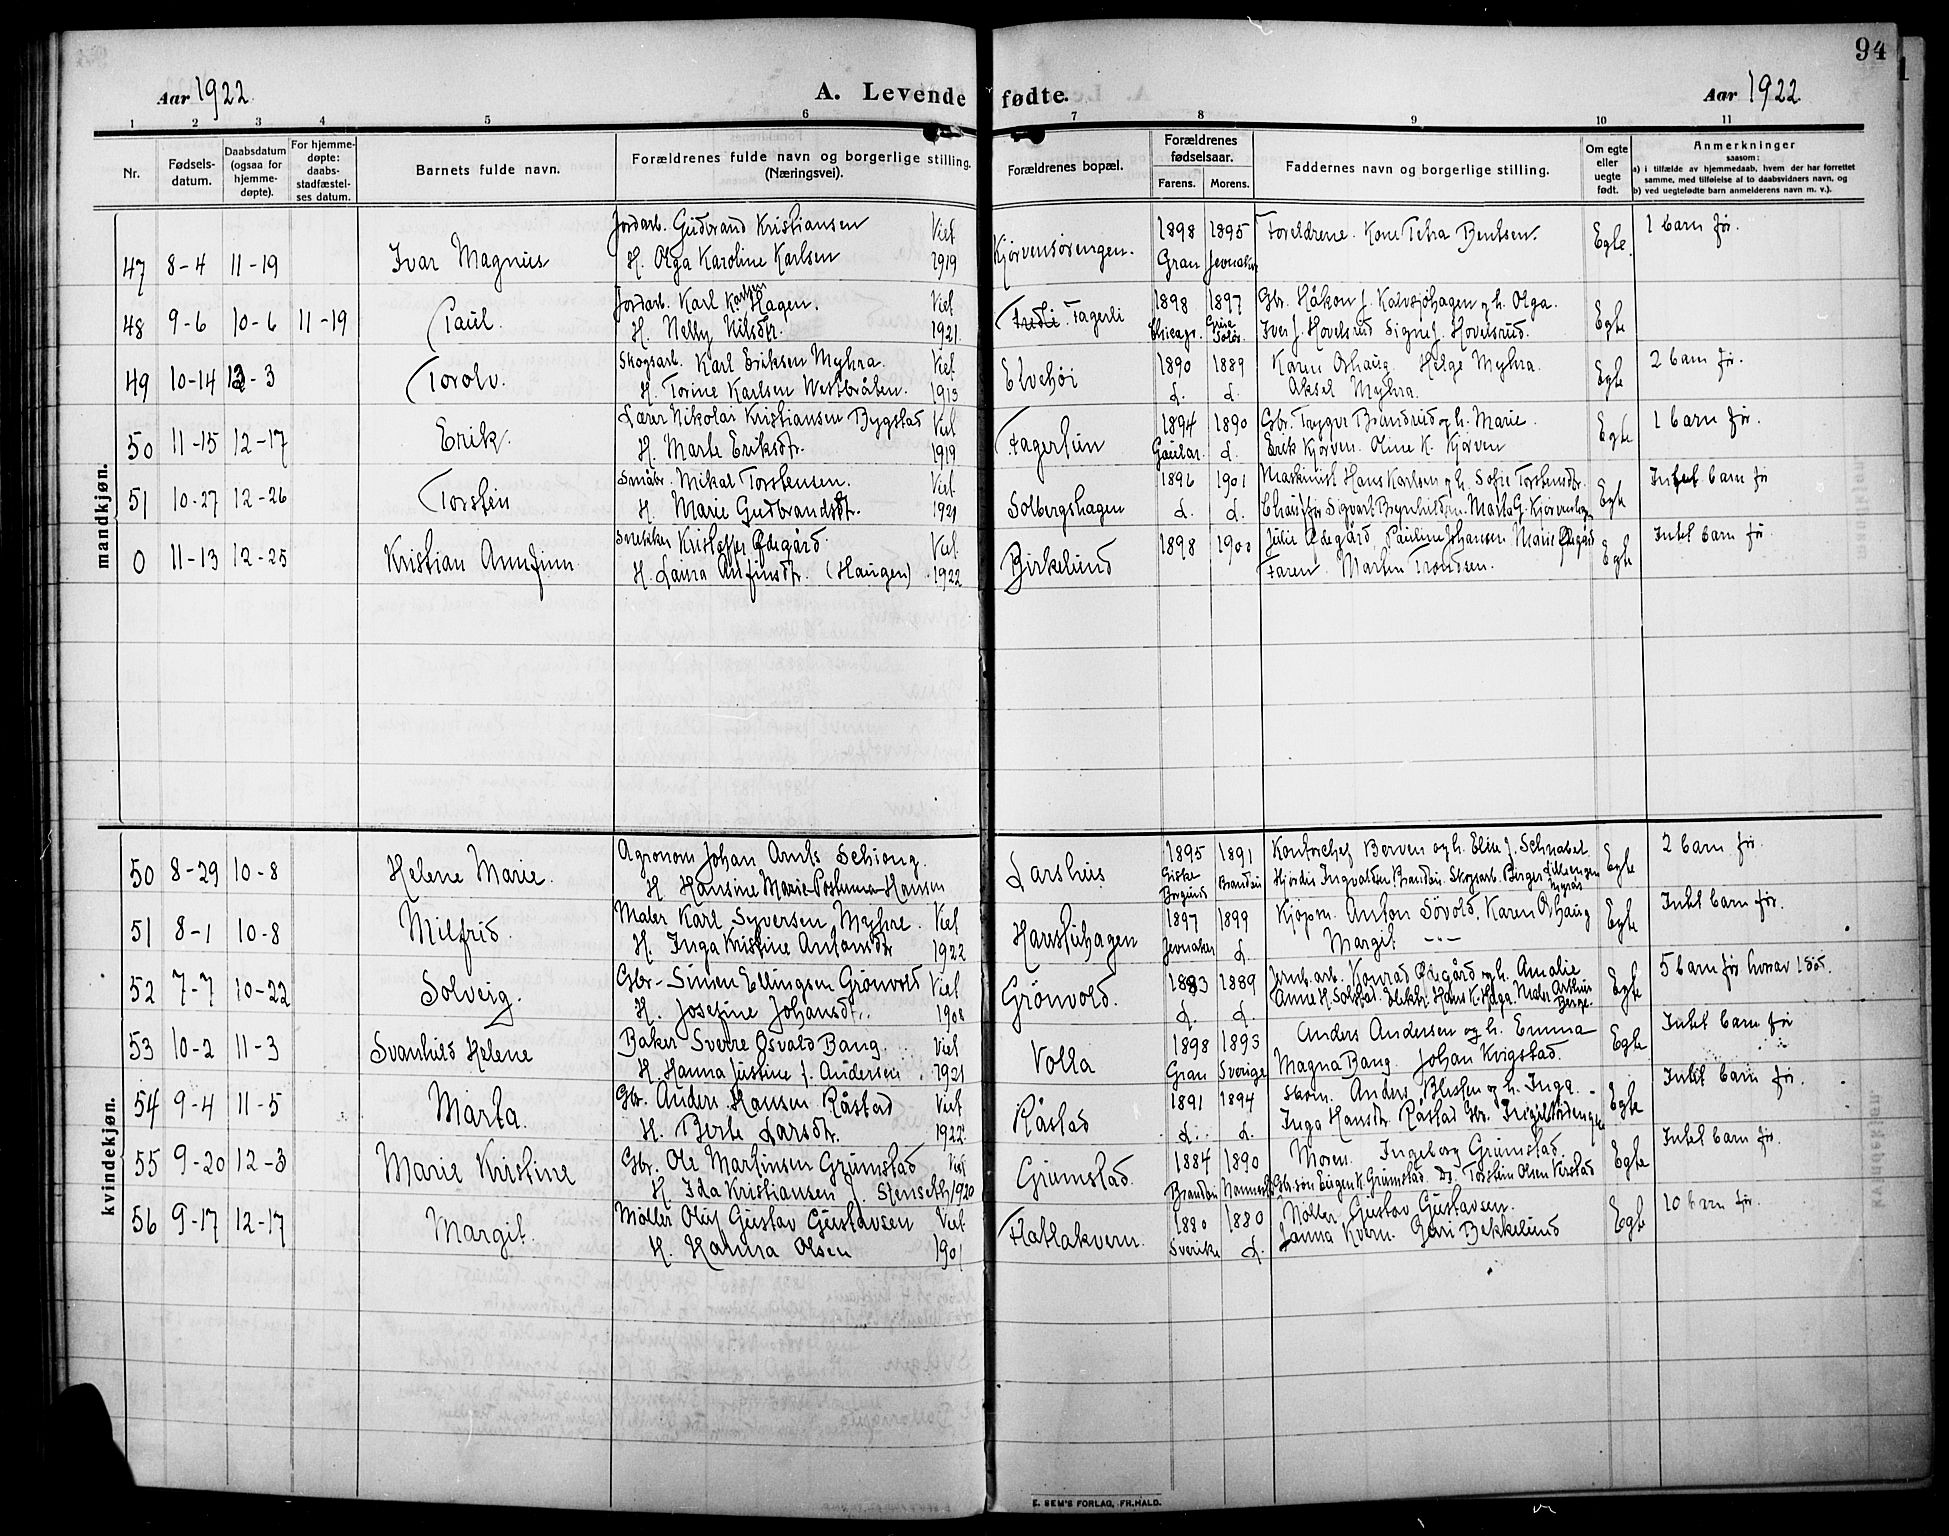 94
Aar 1922
A. Levende fødte.
Aar 1922
1 2 3 4 5 6 7 8 9 10 11
Nr.
Fødselsdatum.
Daabsdatum (ogsaa for hjemmedøpte).
For hjemmedøpte: daabsstadfæstelses datum.
Barnets fulde navn.
Forældrenes fulde navn og borgerlige stilling. (Næringsvei).
Forældrenes bopæl.
Forældrenes fødselsaar.
Farens. Morens.
Faddernes navn og borgerlige stilling.
Om egte eller uegte født.
Anmerkninger
saasom:
a) i tilfælde av hjemmedaab, hvem der har forrettet samme, med tilføielse af to daabsvidners navn, og
b) ved uegtefødte barn anmelderens navn m. v.).
mandkjøn.
Jordarb. Gudbrand Kristiansen Viet 1898 1895 Foreldrene. Kone Petra Bentsen. 1 barn før.
47 8-4 11-19 Ivar Magnus H. Olga Karoline Karlsen 1919 Kjørvensørengen. Gran Jevnaker Egte.
Jordarb. Karl Karlsen Hagen. Viet 1898 1897 Gbr. Håkon J. Kalvsjøhagen og h. Olga.
48 9-6 10-6 11-19 Paul. H. Nelly Nilsdtr. 1921 Fagerli Grue Solør. Iver J. Hovelsrud Signe J. Hovelsrud. Egte
Skogsarb. Karl Eriksen Myhra. Viet 1890 1889 Karen Oshaug. Helge Myhra. 2 barn før.
49 10-14 12-3 Torolv. H. Torine Karlsen Westbråten. 1913 Elvehøi d. d. Aksel Myhra. Egte
Lærer Nikolai Kristiansen Bygstad Viet 1894 1890 Gbr. Trygve Brandrud og h. Marie. 1 barn før.
50 11-15 12-17 Erik. H. Marte Eriksdtr. 1919 Fagerlün Gaular. d. Erik Kjørven. Oline K. Kjørven Egte
Småbr. Mikal Torstensen. Viet 1896 1901 Maskinist Hans Karlsen og h. Sofie Torstensdtr. Intet barn før
51 10-27 12-26 Torstein H. Marie Gudbrandsdtr. 1921 Solbergshagen d. d. Chauffør Sigvart Brynhildsen. Marta G. Kjørvenhagen Egte
Snekker Kristoffer Ødegård. Viet 1898 1900 Julie Ødegård Pauline Johansen Marie Ødegård Intet barn før
0 11-13 12-25 Kristian Arnfinn H. Laura Anfinsdtr. (Haugen) 1922 Birkelund Faren. Martin Trondsen. Egte
kvindekjøn.
Agronom Johan Arnts Schiong. 1895 1891 Kontorchef Berven og h. Elise J. Schnabel 2 barn før
50 8-29 10-8 Helene Marie. H. Hansine Marie Postumn Hansen Larshus Giske Borgund Brandbu Hjørdis Ingvaldsen Brandbu. Skogsarb. Birger Lillengen Myrås Egte
Maler Karl Syversen Myhre. Viet 1897 1899 Kjøpm. Anton Søvold. Karen Oshaug Intet barn før.
51 8-1 10-8 Milfrid. H. Inga Kristine Antonsdtr 1922 Hanstuhagen Jevnaker d. Margit -"- Egte
Gbr. Simen Ellingsen Grönvold Viet 1883 1889 Jernb.arb. Konrad Ødegård og h. Amalie 5 barn før hvorav 1 død.
52 7-7 10-22 Solveig. H. Josefine Johansdtr. 1908 Grönvold. d. d. Anne H. Solstad. Elektr. Hans K. Haga. Maler Arthur Berge. Egte
Baker Sverre Osvald Bang. Viet 1898 1893 Anders Andersen og h. Emma Intet barn før
53 10-2 11-3 Svanhild Helene H. Hanna Justine J. Andersen. 1921 Volla Gran Sverige Magna Bang. Johan Kvigstad. Egte
Gbr. Anders Hansen Råstad Viet 1891 1894 Skom. Anders Blisten og h. Inga. Intet barn før.
54 9-4 11-5 Marta. H. Berte Larsdtr. 1922 Råstad d. d. Inga Hansdtr. Råstad Gbr. Egte
Gbr. Ole Martinsen Grümstad Viet 1884 1890 Moren. Ingeborg Grümstad. Intet barn før.
55 9-20 12-3 Marie Kristine H. Ida Kristiansen J. Stenseth 1920 Grümstad. Brandbu Nannestad Gbrsøn Eugen K. Grümstad. Do. Torstein Olsen Kirstad Egte
Møller Oluf Gustav Gustavsen Viet 1880 1880 Møller Gustav Gustavsen. 10 barn før.
56 9-17 12-17 Margit. H. Hanna Olsen 1901 Hatlakvern. Sverike d. Janna Kvern. Guri Bekkelund Egte
E. SEM'S FORLAG, FR.HALD.